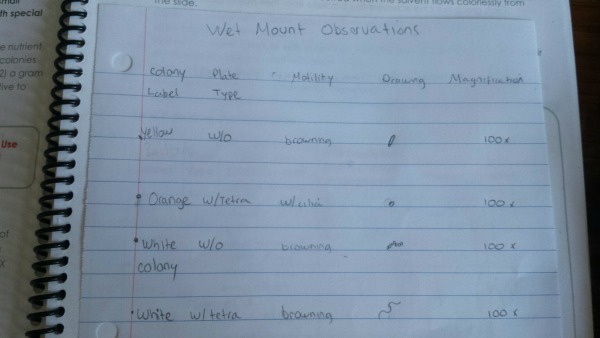 the slide.
when the solvent flows colorlessly from
th special
e nutrient
colonies
2) a gram
tive to
Use
of
X
Wet Mount Observations
colony Plate Motility Drawing Magnification
Label Type
yellow w/o browning 100x
Orange w/Tetra 100x
White w/o browning 100x
colony
White w/tetra browning 100x